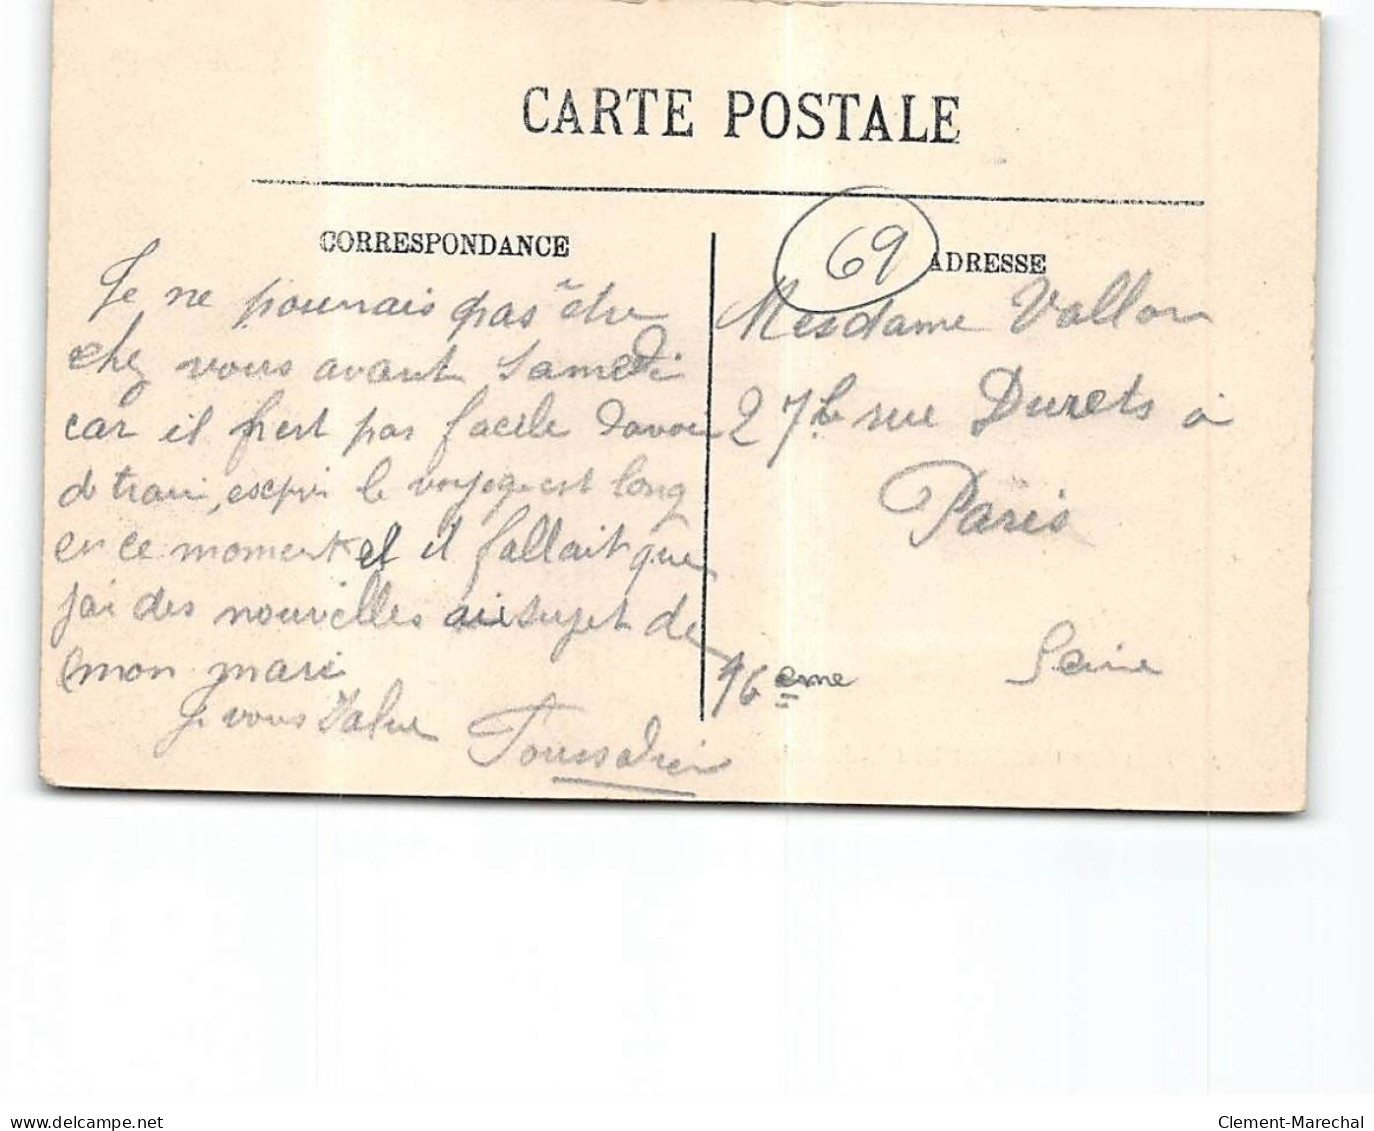 CARTE POSTALE
CORRESPONDANCE
Je ne pourrais pas être
chez vous avant Samedi
car il n'est pas facile davoir
de train, et le voyage est long
en ce moment et il fallait que
jai des nouvelles au sujet de
mon mari
Je vous Salue
69
ADRESSE
Mesdame Vallon
27 b rue Durets à
Paris
16 eme
Seine
delcampe.net
Clement-Marechal